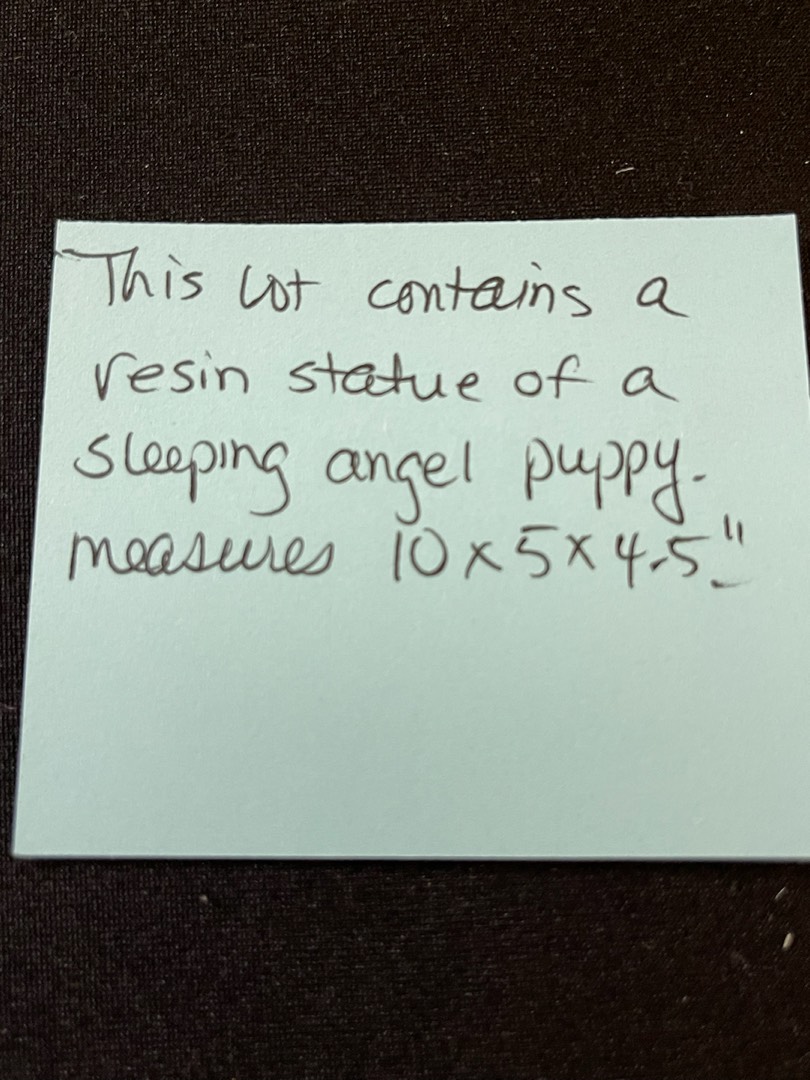 This lot contains a
resin statue of a
sleeping angel puppy.
measures 10 x 5 x 4.5"